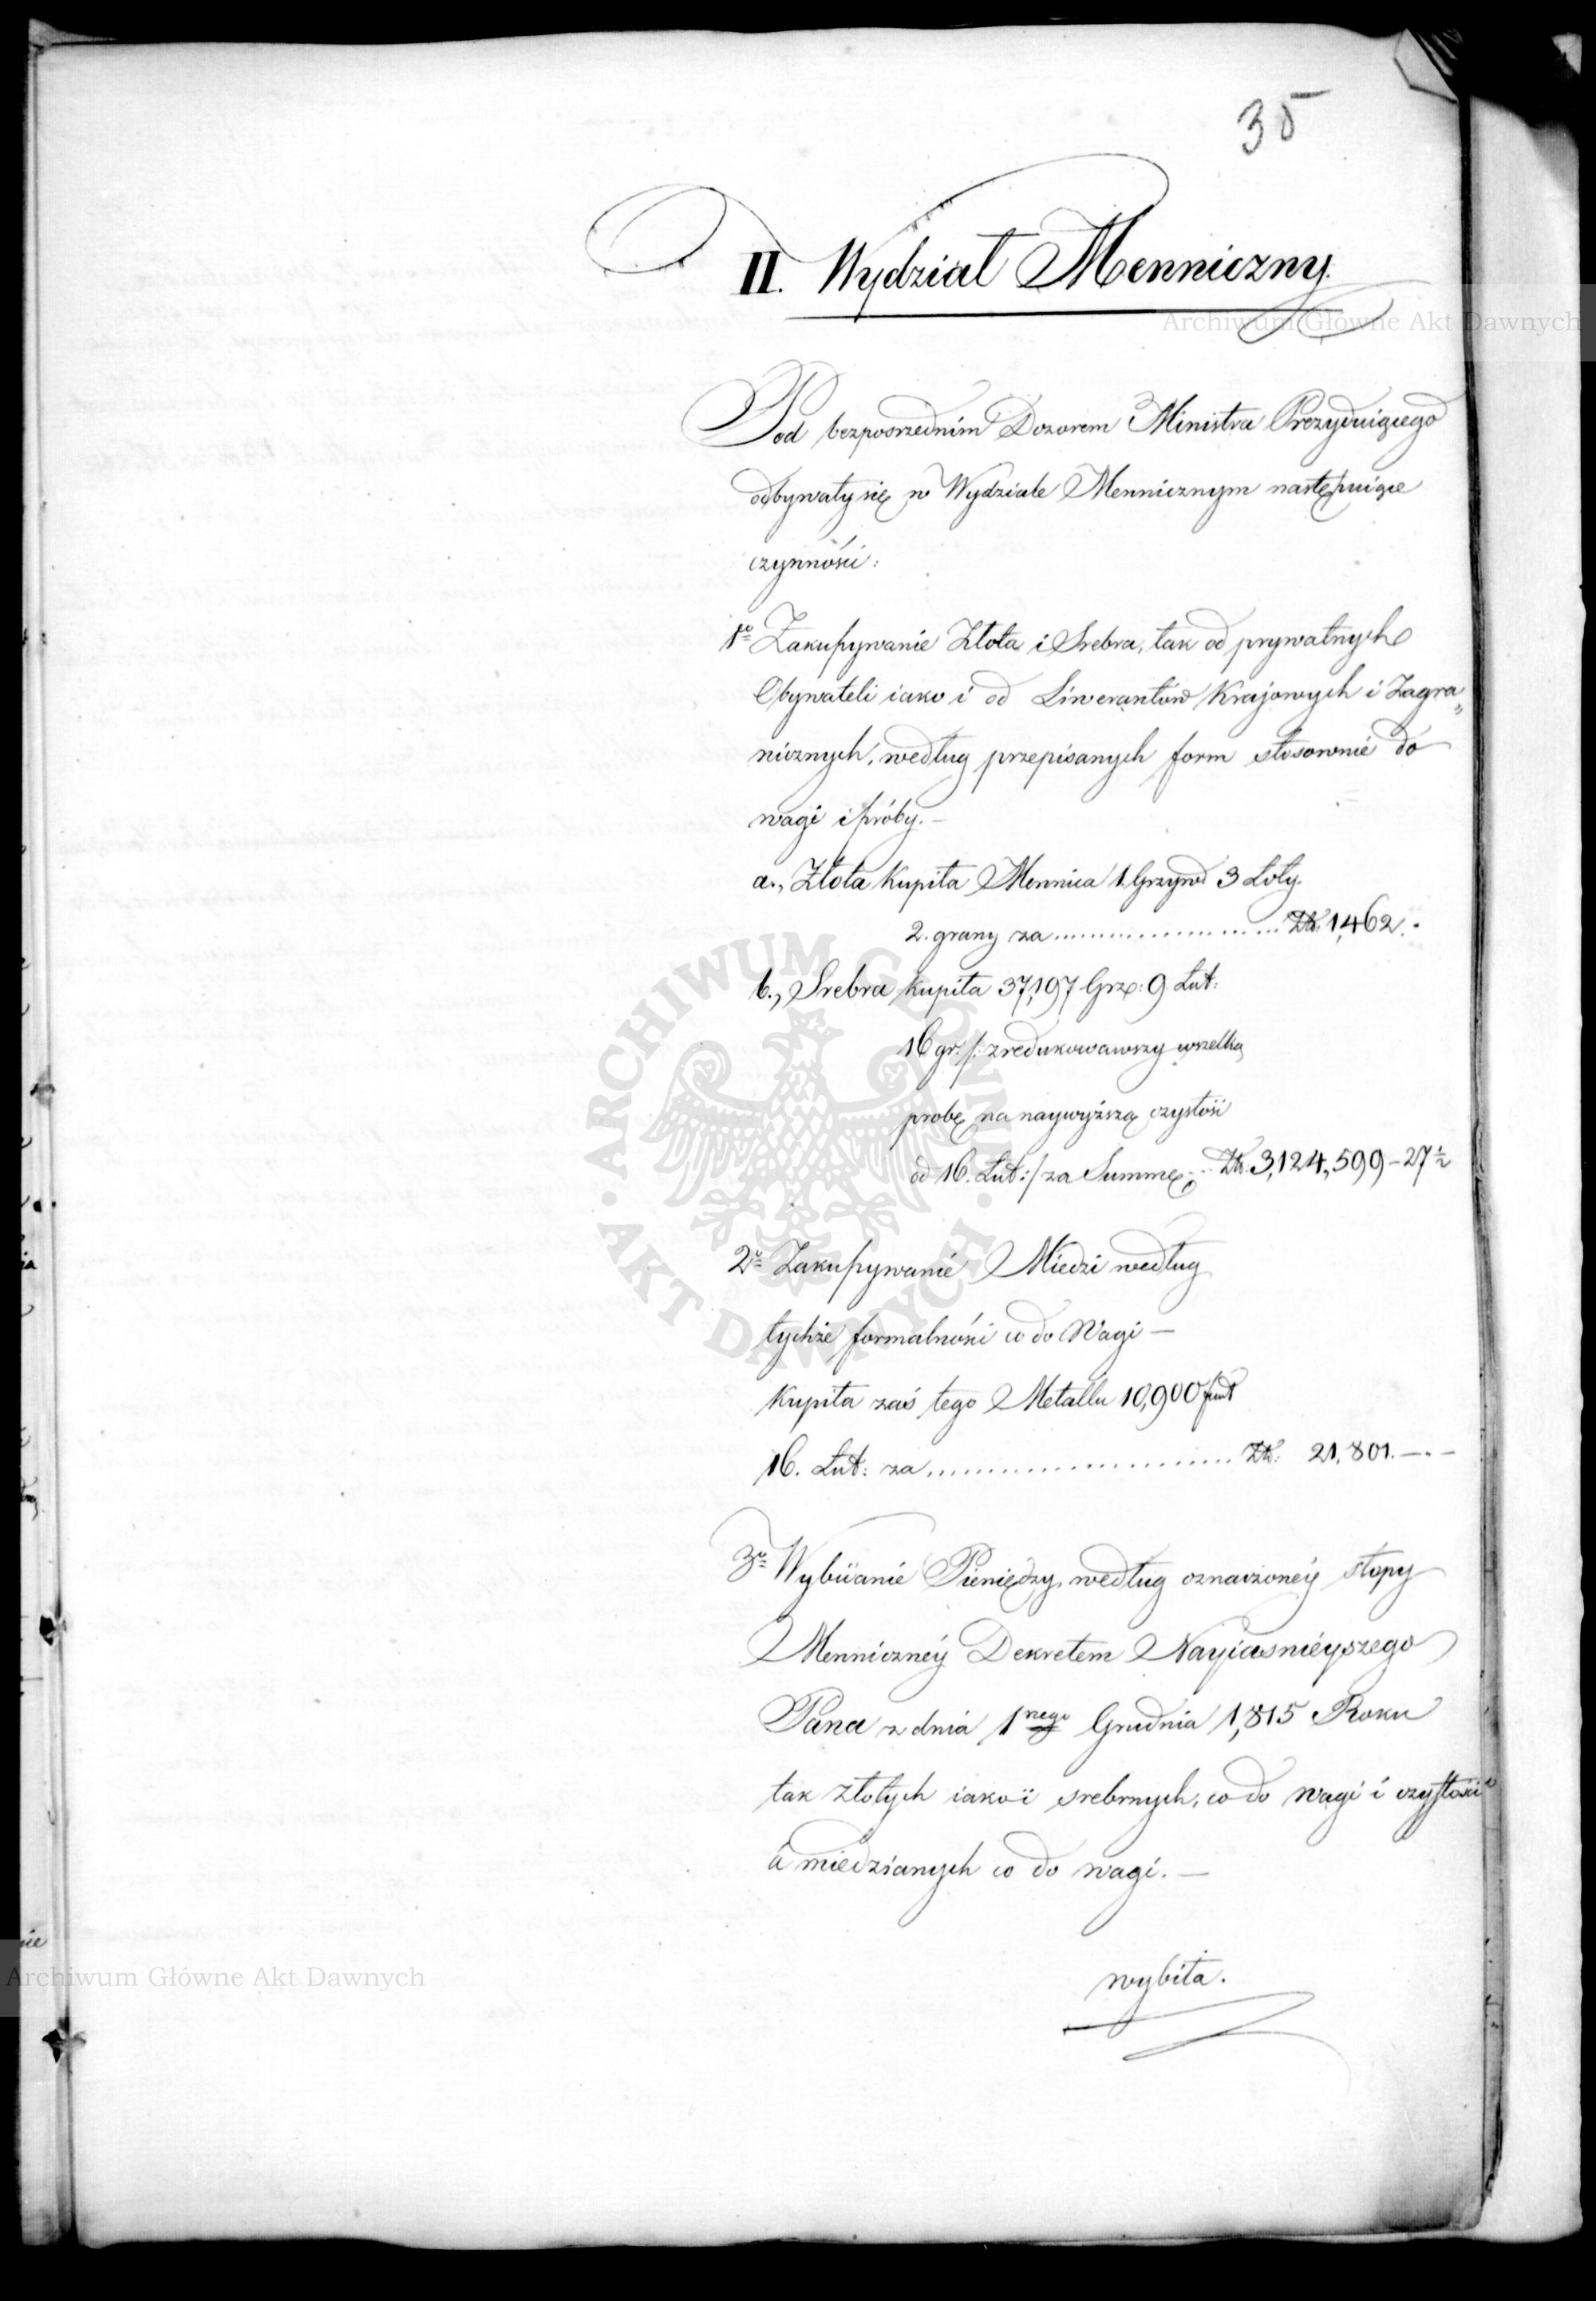 35
II. Wydział Menniczny.
Pod bezpośrednim Dozorem Ministra Prezyduiącego
odbywały się w Wydziale Mennicznym następuiące
czynności:
1o Zakupywanie Złota i Srebra, tak od prywatnych
Obywateli iako i od Liwerantów Krajowych i Zagra„
nicznych, według przepisanych form stosownie do
wagi i próby.—
a., Złota Kupiła Mennica 1. Grzyw 3 Łoty.
2. grany za ........................ Zł. 1,462.-
b., Srebra Kupiła 37,197 Grz: 9 Łut:
16 gr. /: zredukowawszy wszelką
probę na naywyższą czystość
od 16. Łut: :/ za Summę... Zł. 3,124,599-27 ½
2o Zakupywanie Miedzi według
tychże formalności co do Wagi —
Kupiła zaś tego Metallu 10,900 funt
16. Łut: za ........................ Zł. 21,801.—.—
3o Wybiianie Pieniędzy, według oznaczonéy stopy
Mennicznéy Dekretem Nayiaśnieyszego
Pana z dnia 1nego Grudnia 1,815 Roku
tak złotych iako i srebrnych, co do wagi i czystości
a miedzianych co do wagi.—
wybiła.
Archiwum Główne Akt Dawnych
ARCHIWUM GŁÓWNE · AKT DAWNYCH ·
Archiwum Główne Akt Dawnych